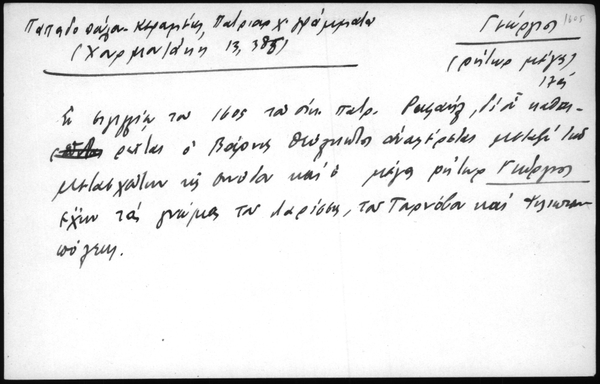 Παπαδοπούλου Κεραμέως, Πατριαρχ. γράμματα
(Χαρμουζάκη 13, 385)
Γεώργιος 1605
(ρήτωρ μέγας)
17ος
Εν σιγιλλίω του 1605 του οικ. πατρ. Ραφαήλ, δι' ου καθαι-
ρείται ο Βάρνης Θεόληπτος αναφέρεται μεταξύ των
μετασχόντων της συνόδου και ο μέγας ρήτωρ Γεώργιος
έχων τας γνώμας του Λαρίσσης, του Τυρνόβου και Φιλιππου-
πόλεως.